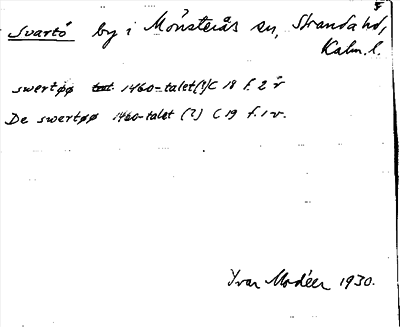 Svartö by i Mönsterås sn, Stranda hd,
Kalm. l.
swertøø 1460-talet (?) C 18 f. 2 r
De swertøø 1460-talet (?) C 19 f. 1 v.
Ivar Modéer 1930.